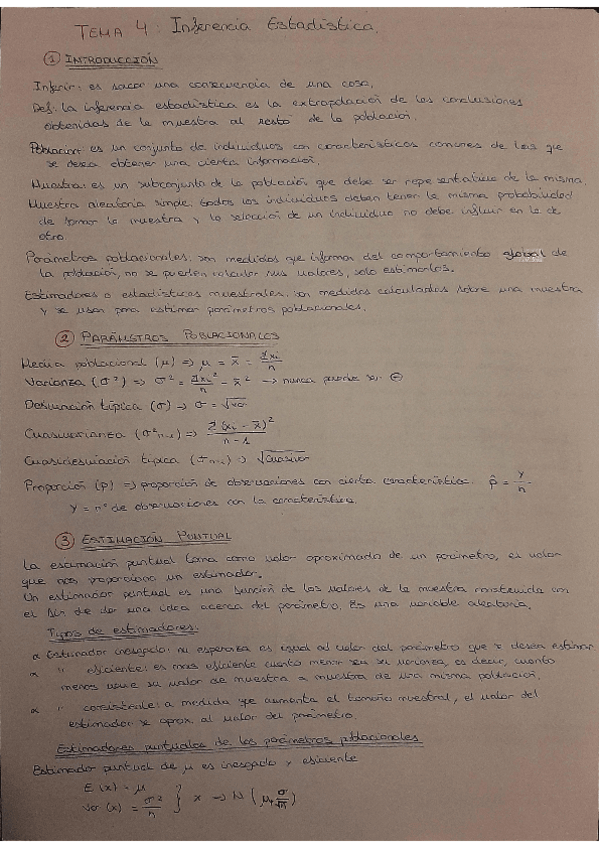 TEMA 4: Inferencia Estadística.
① INTRODUCCIÓN
Inferir: es sacar una consecuencia de una cosa.
Def: La inferencia estadística es la extrapolación de las conclusiones
obtenidas de la muestra al resto de la población.
Población: es un conjunto de individuos con características comunes de los que
se desea obtener una cierta información.
Muestra: es un subconjunto de la población que debe ser representativo de la misma.
Muestra aleatoria simple: todos los individuos deben tener la misma probabilidad
de tomar la muestra y la selección de un individuo no debe influir en la de
otro.
Parámetros poblacionales: son medidas que informan del comportamiento global de
la población, no se pueden calcular sus valores, solo estimarlos.
Estimadores o estadísticos muestrales: son medidas calculadas sobre una muestra
y se usan para estimar parámetros poblacionales.
② PARÁMETROS POBLACIONALES
Media poblacional (μ) => μ = x̄ = Σxi/n
Varianza (σ²) => σ² = Σxi²/n - x̄² -> nunca puede ser ⊖
Desviación típica (σ) -> σ = √var
Cuasivarianza (σ²n-1) => Σ(xi - x̄)²/n-1
Cuasidesviación típica (σn-1) => √cuasivar
Proporción (p) => proporción de observaciones con cierta característica. p̂ = y/n
Y = nº de observaciones con la característica.
③ ESTIMACIÓN PUNTUAL
La estimación puntual toma como valor aproximado de un parámetro, el valor
que nos proporciona un estimador.
Un estimador puntual es una función de los valores de la muestra construida con
el fin de dar una idea acerca del parámetro. Es una variable aleatoria.
Tipos de estimadores:
α Estimador insesgado: su esperanza es igual al valor del parámetro que se desea estimar
α " eficiente: es más eficiente cuanto menor sea su varianza, es decir, cuanto
menos varíe su valor de muestra a muestra de una misma población.
α " consistente: a medida que aumenta el tamaño muestral, el valor del
estimador se aprox. al valor del parámetro.
Estimadores puntuales de los parámetros poblacionales
Estimador puntual de μ es insesgado y eficiente
E(x) = μ
Var(x) = σ²/n } x -> N(μ, σ/√n)